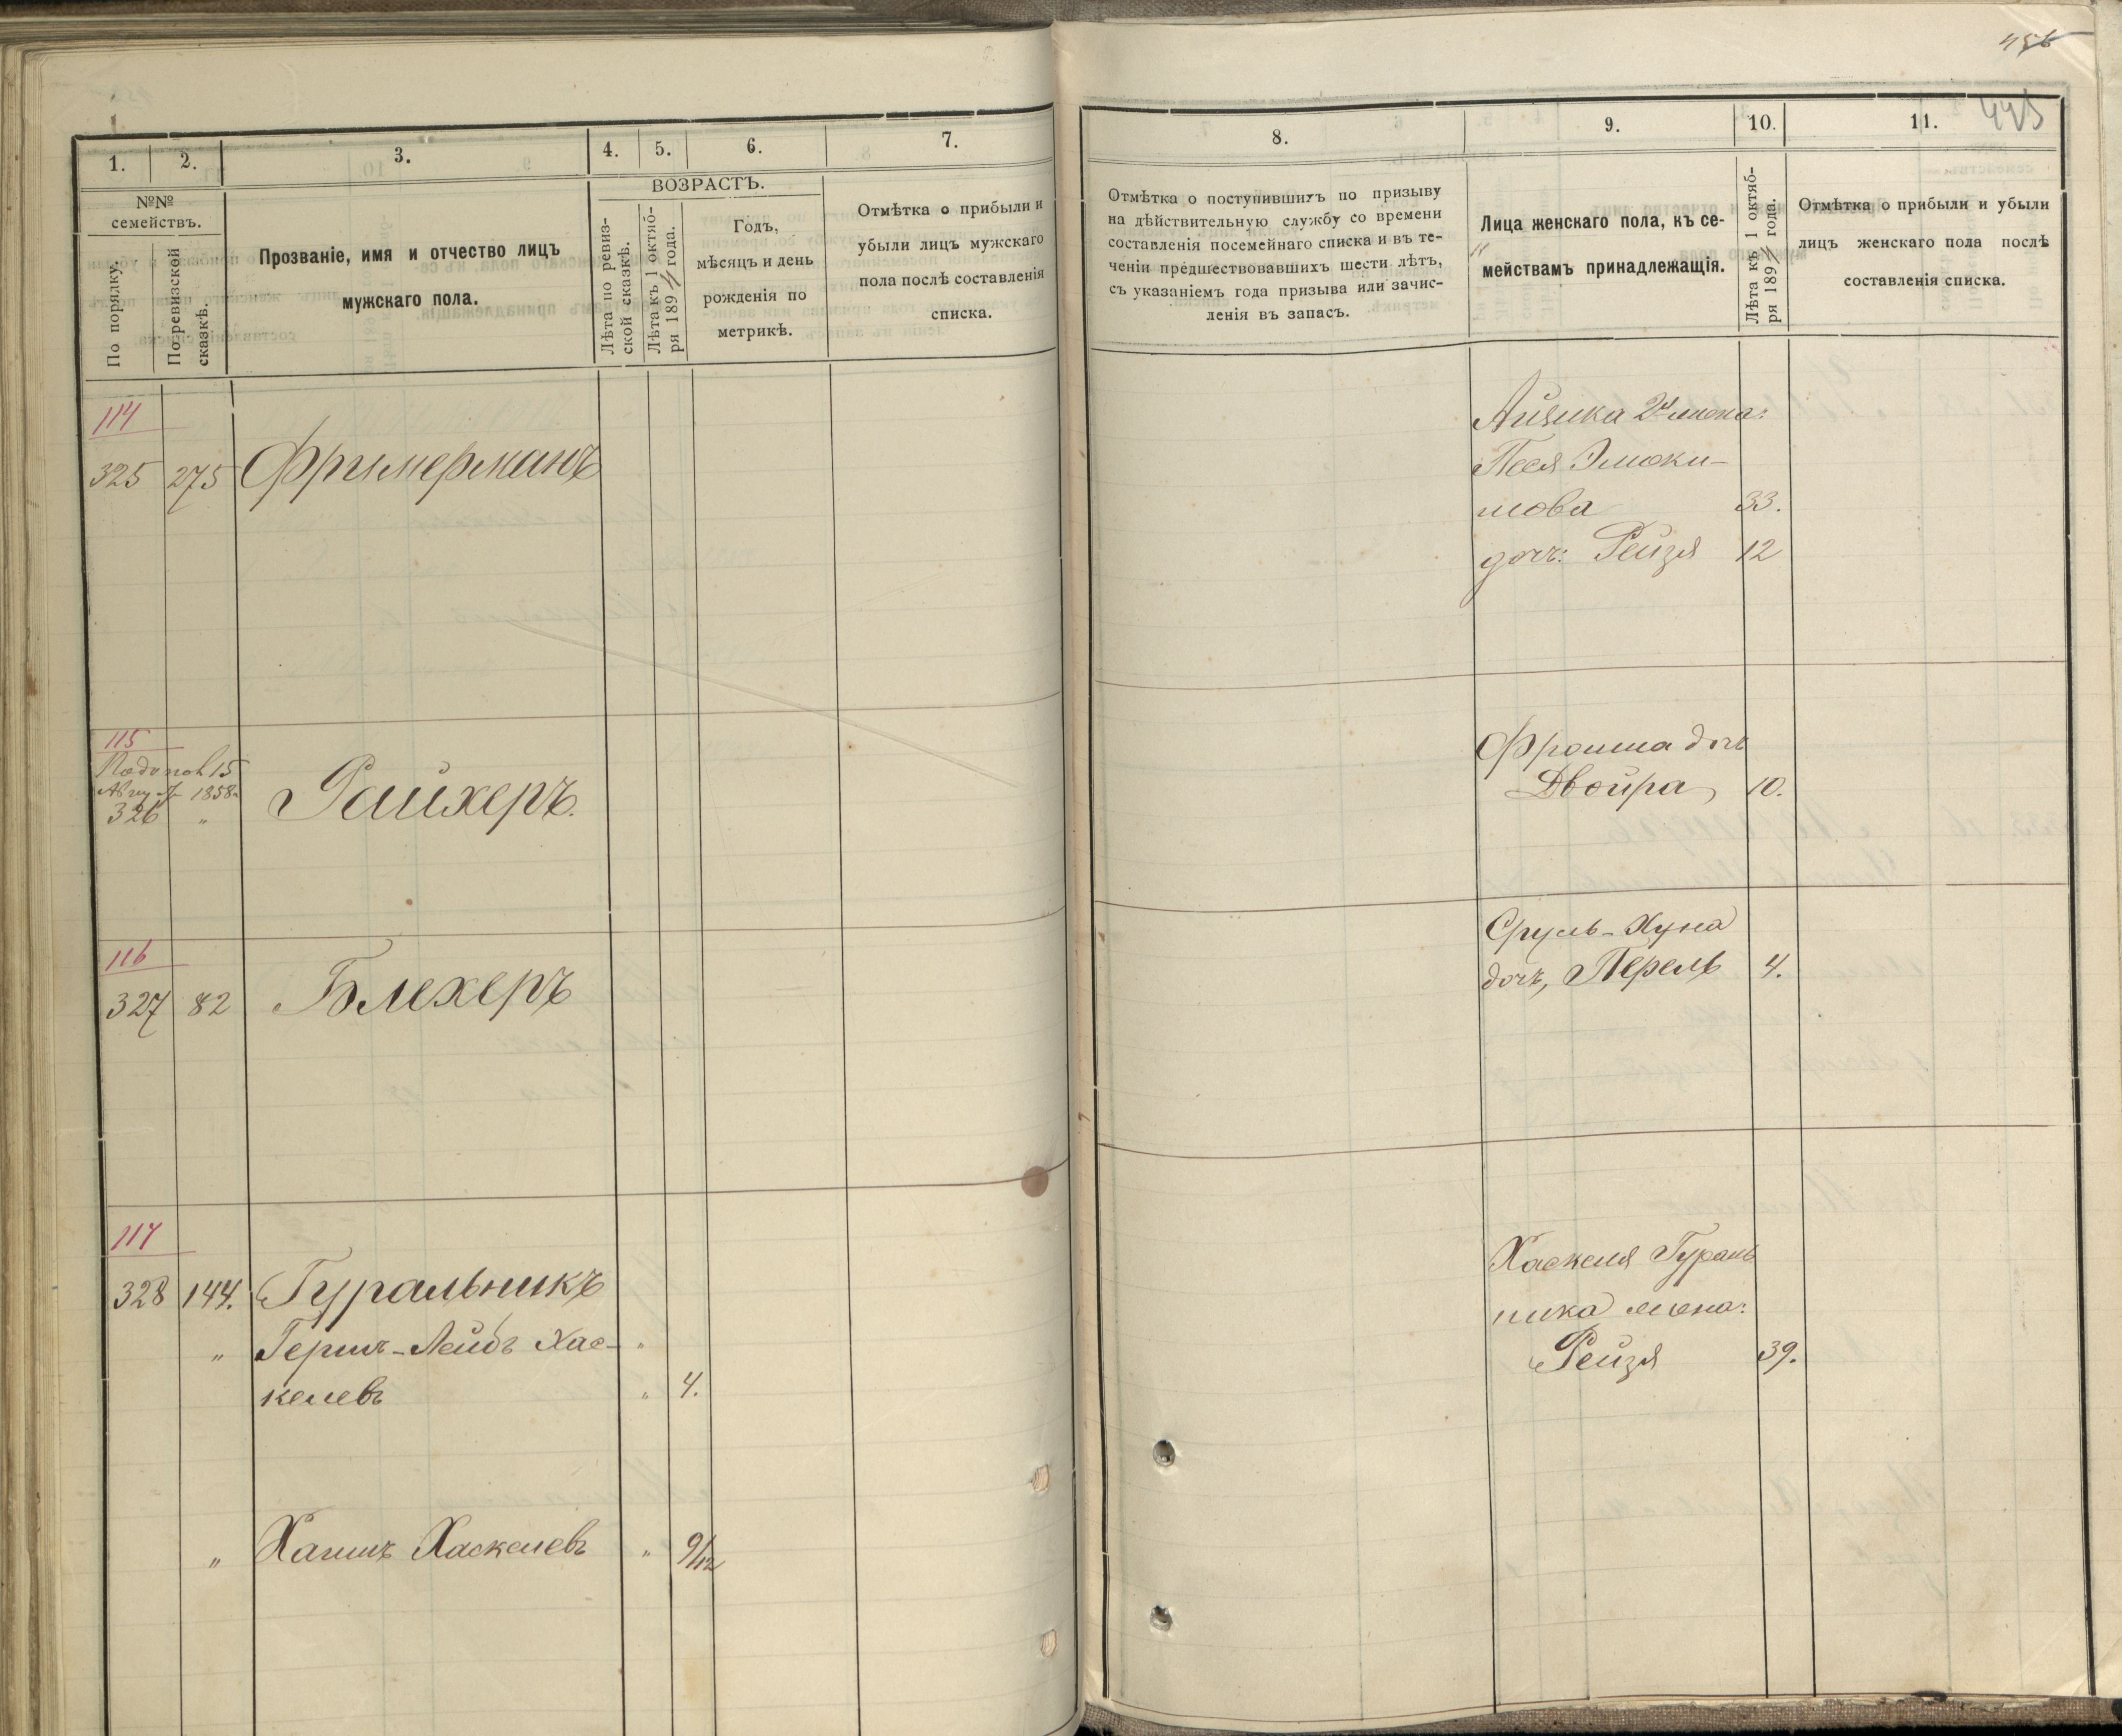 456
445
1.
2.
3.
4.
5.
6.
7.
№№
семействъ.
По порядку.
По ревизской
сказкѣ.
Прозваніе, имя и отчество лицъ
мужскаго пола.
ВОЗРАСТЪ.
Лѣта по ревиз-
ской сказкѣ.
Лѣта къ 1 октяб-
ря 189 года.
Годъ,
мѣсяцъ и день
рожденія по
метрикѣ.
Отмѣтка о прибыли и
убыли лицъ мужскаго
пола послѣ составленія
списка.
114
325 275 Фримерманъ
115
15
Август 1858
326 "
Райхеръ.
116
327 82 Блехеръ
117
328 144. Гуральникъ
" Гершъ-Лейбъ Хас- "
келевъ " 4.
" Хаимъ Хаскелевъ " 9/12
8.
9.
10.
11.
Отмѣтка о поступившихъ по призыву
на дѣйствительную службу со времени
составленія посемейнаго списка и въ те-
ченіи предшествовавшихъ шести лѣтъ,
съ указаніемъ года призыва или зачис-
ленія въ запасъ.
Лица женскаго пола, къ се-
мействамъ принадлежащія.
Лѣта къ 1 октяб-
ря 189 года.
Отмѣтка о прибыли и убыли
лицъ женскаго пола послѣ
составленія списка.
Айзика 2я жена:
Песя
мова 33.
доч: Рейзя 12
Фроима доч
Двойра 10.
Сруль-Хуна
доч, Перель 4.
Хаскеля Гураль
ника жена:
Рейзя 39.